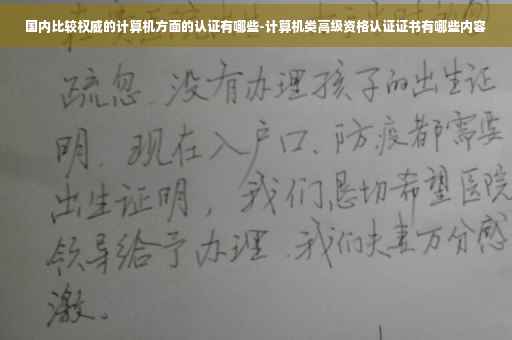 国内比较权威的计算机方面的认证有哪些-计算机类高级资格认证证书有哪些内容
疏忽、没有办理孩子的出生证
明、现在入户口、防疫都需要
出生证明，我们恳切希望医院
领导给予办理、我们夫妻万分感
激。